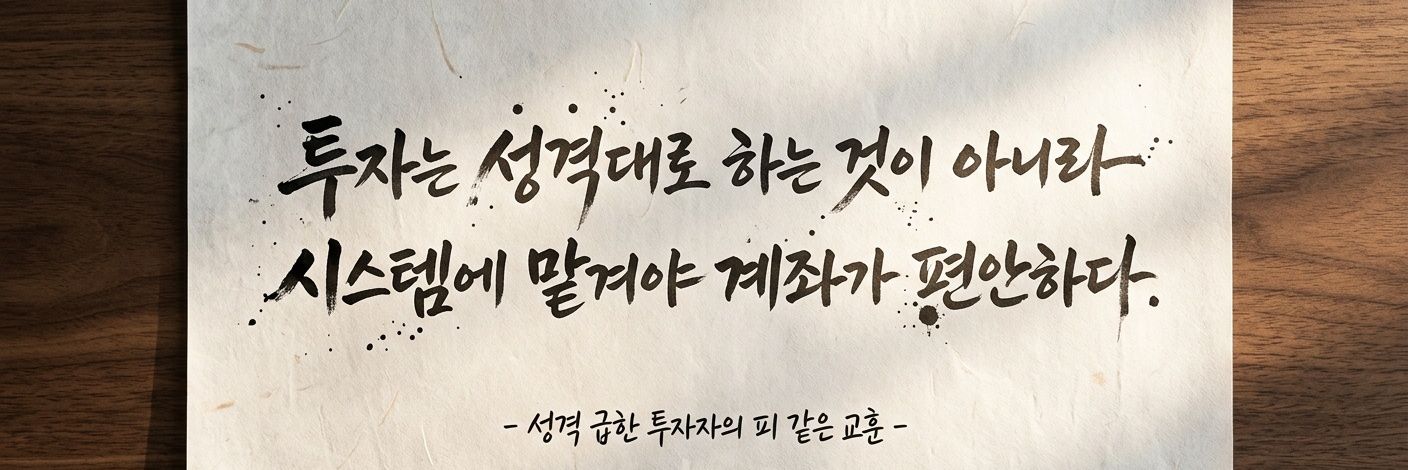 투자는 성격대로 하는 것이 아니라
시스템에 맡겨야 계좌가 편안하다.
- 성격 급한 투자자의 피 같은 교훈 -